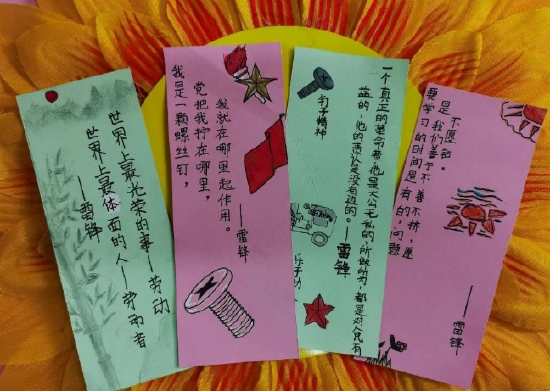 世界上最光荣的事——劳动
世界上最体面的人——劳动者
——雷锋
我是一颗螺丝钉，
党把我拧在哪里，
我就在哪里起作用。
——雷锋
钉子精神
一个真正的革命者，他是大公无私的，所做所为，都是对人民有
益的，他的责任是没有边的。
——雷锋
要学习的时间是有的，问题
是我们善于不善不挤，愿
不愿钻。
——雷锋